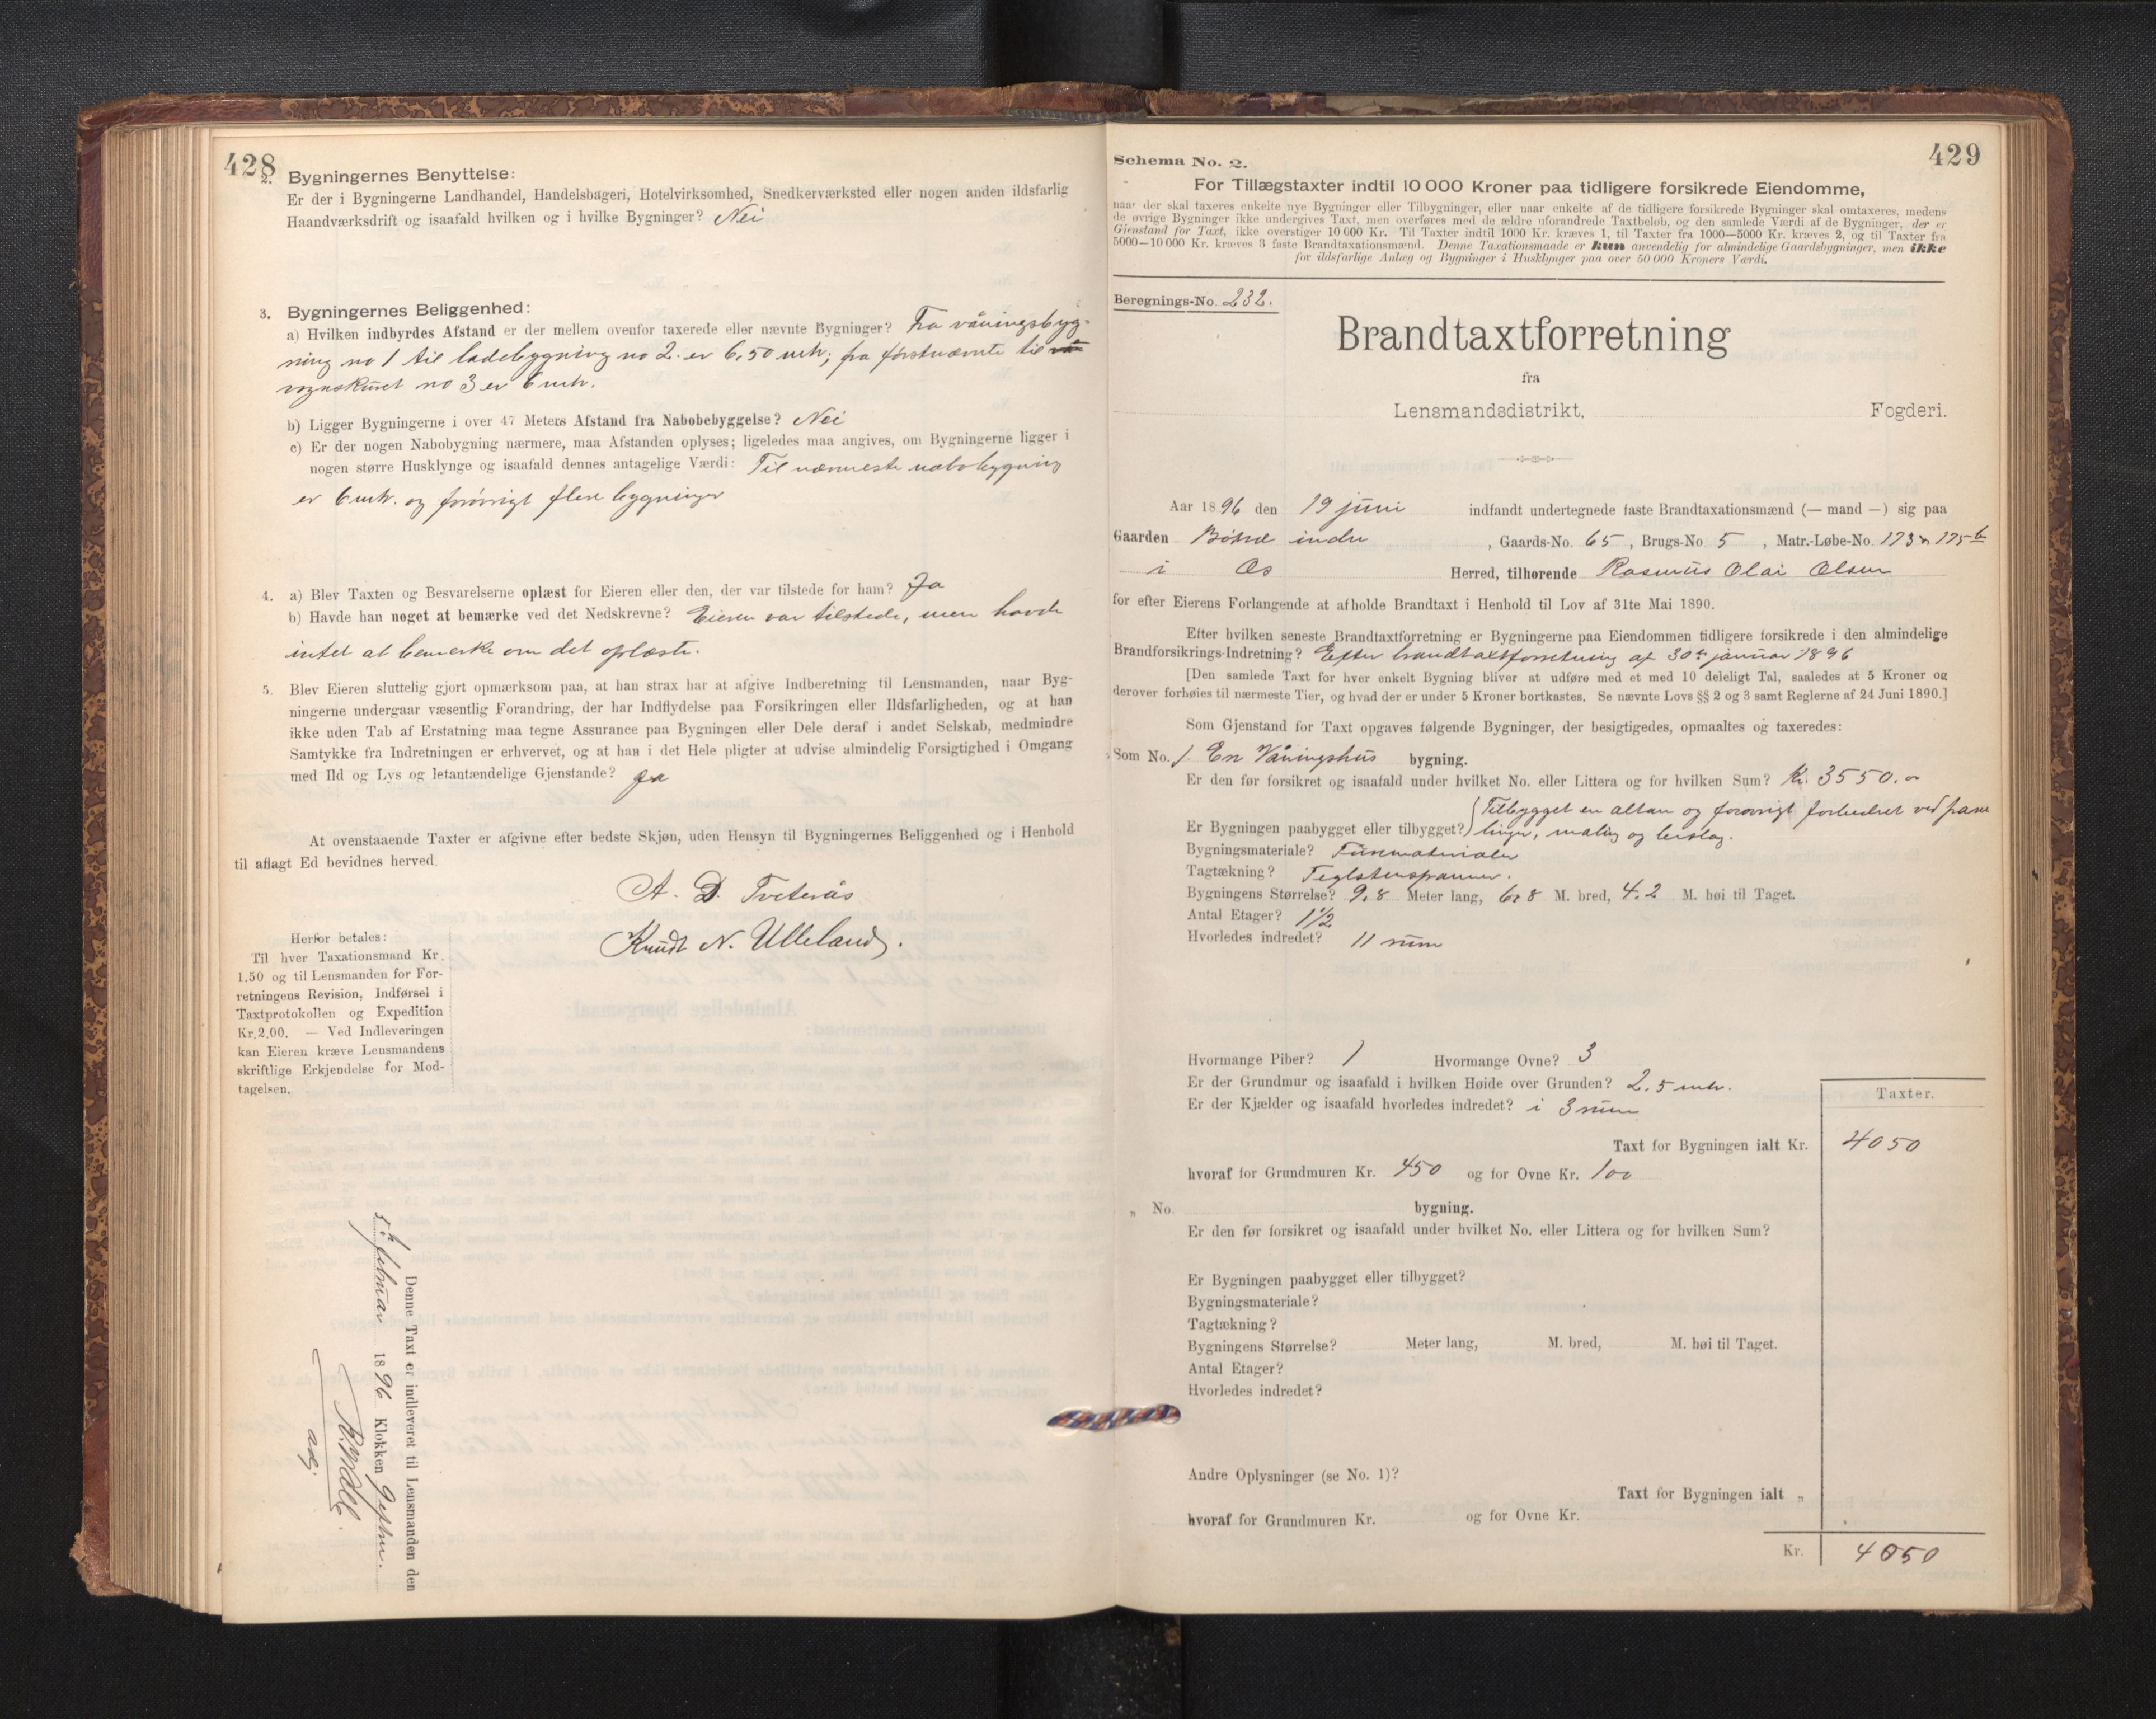 428
2. Bygningernes Benyttelse:
Er der i Bygningerne Landhandel, Handelsbageri, Hotelvirksomhed, Snedkerværksted eller nogen anden ildsfarlig
Haandværksdrift og isaafald hvilken og i hvilke Bygninger? Nei
3. Bygningernes Beliggenhed:
a) Hvilken indbyrdes Afstand er der mellem ovenfor taxerede eller nævnte Bygninger? Fra våningsbyg-
ning no 1 til ladebygning no 2. er 6,50 mtr; fra førstnævnte til
vognskuret no 3 er 6 mtr.
b) Ligger Bygningerne i over 47 Meters Afstand fra Nabobebyggelse? Nei
c) Er der nogen Nabobygning nærmere, maa Afstanden oplyses; ligeledes maa angives, om Bygningerne ligger i
nogen større Husklynge og isaafald dennes antagelige Værdi: Til nærmeste nabobygning
er 6 mtr. og forøvrigt flere bygninger
4. a) Blev Taxten og Besvarelserne oplæst for Eieren eller den, der var tilstede for ham? Ja
b) Havde han noget at bemærke ved det Nedskrevne? Eieren var tilstede, men havde
intet at bemerke om det oplæste.
5. Blev Eieren sluttelig gjort opmærksom paa, at han strax har at afgive Indberetning til Lensmanden, naar Byg-
ningerne undergaar væsentlig Forandring, der har Indflydelse paa Forsikringen eller Ildsfarligheden, og at han
ikke uden Tab af Erstatning maa tegne Assurance paa Bygningen eller Dele deraf i andet Selskab, medmindre
Samtykke fra Indretningen er erhvervet, og at han i det Hele pligter at udvise almindelig Forsigtighed i Omgang
med Ild og Lys og letantændelige Gjenstande? Ja
At ovenstaaende Taxter er afgivne efter bedste Skjøn, uden Hensyn til Bygningernes Beliggenhed og i Henhold
til aflagt Ed bevidnes herved.
A. D. Tveterås
Knudt N. Ulleland.
Herfor betales:
Til hver Taxationsmand Kr.
1.50 og til Lensmanden for For-
retningens Revision, Indførsel i
Taxtprotokollen og Expedition
Kr. 2.00. — Ved Indleveringen
kan Eieren kræve Lensmandens
skriftlige Erkjendelse for Mod-
tagelsen.
Denne Taxt er indleveret til Lensmanden den
5te februar 1896 Klokken
429
Schema No. 2.
For Tillægstaxter indtil 10 000 Kroner paa tidligere forsikrede Eiendomme,
naar der skal taxeres enkelte nye Bygninger eller Tilbygninger, eller naar enkelte af de tidligere forsikrede Bygninger skal omtaxeres, medens
de øvrige Bygninger ikke undergives Taxt, men overføres med de ældre uforandrede Taxtbeløb, og den samlede Værdi af de Bygninger, der er
Gjenstand for Taxt, ikke overstiger 10 000 Kr. Til Taxter indtil 1000 Kr. kræves 1, til Taxter fra 1000—5000 Kr. kræves 2, og til Taxter fra
5000—10 000 Kr. kræves 3 faste Brandtaxationsmænd. Denne Taxationsmaade er kun anvendelig for almindelige Gaardsbygninger, men ikke
for ildsfarlige Anlæg og Bygninger i Husklynger paa over 50 000 Kroners Værdi.
Beregnings-No. 232.
Brandtaxtforretning
fra
Lensmandsdistrikt, Fogderi.
Aar 1896 den 19 juni indfandt undertegnede faste Brandtaxationsmænd (— mand —) sig paa
Gaarden indre, Gaards-No. 65, Brugs-No. 5, Matr.-Løbe-No. 173 175b
i Os Herred, tilhørende Rasmus Olai Olsen
for efter Eierens Forlangende at afholde Brandtaxt i Henhold til Lov af 31te Mai 1890.
Efter hvilken seneste Brandtaxtforretning er Bygningerne paa Eiendommen tidligere forsikrede i den almindelige
Brandforsikrings-Indretning? Efter brandtaxtforretning af 30te januar 1896
[Den samlede Taxt for hver enkelt Bygning bliver at udføre med et med 10 deleligt Tal, saaledes at 5 Kroner og
derover forhøies til nærmeste Tier, og hvad der er under 5 Kroner bortkastes. Se nævnte Lovs §§ 2 og 3 samt Reglerne af 24 Juni 1890.]
Som Gjenstand for Taxt opgaves følgende Bygninger, der besigtigedes, opmaaltes og taxeredes:
Som No. 1. En Våningshus bygning.
Er den før forsikret og isaafald under hvilket No. eller Littera og for hvilken Sum? Kr. 3550.
Tilbygget en altan og forøvrigt forbedret ved pane
Er Bygningen paabygget eller tilbygget? linger, maling og
Bygningsmateriale? Tømmermaterialer
Tagtækning? Teglstenspanner.
Bygningens Størrelse? 9,8 Meter lang, 6,8 M. bred, 4,2 M. høi til Taget.
Antal Etager? 1 1/2
Hvorledes indredet? 11 rum
Hvormange Piber? 1 Hvormange Ovne? 3
Er der Grundmur og isaafald i hvilken Høide over Grunden? 2,5 mtr.
Er der Kjælder og isaafald hvorledes indredet? i 3 rum
Taxter.
Taxt for Bygningen ialt Kr. 4050
hvoraf for Grundmuren Kr. 450 og for Ovne Kr. 100
„ No. bygning.
Er den før forsikret og isaafald under hvilket No. eller Littera og for hvilken Sum?
Er Bygningen paabygget eller tilbygget?
Bygningsmateriale?
Tagtækning?
Bygningens Størrelse? Meter lang, M. bred, M. høi til Taget.
Antal Etager?
Hvorledes indredet?
Andre Oplysninger (se No. 1)?
Taxt for Bygningen ialt „
hvoraf for Grundmuren Kr. og for Ovne Kr.
Kr. 4050